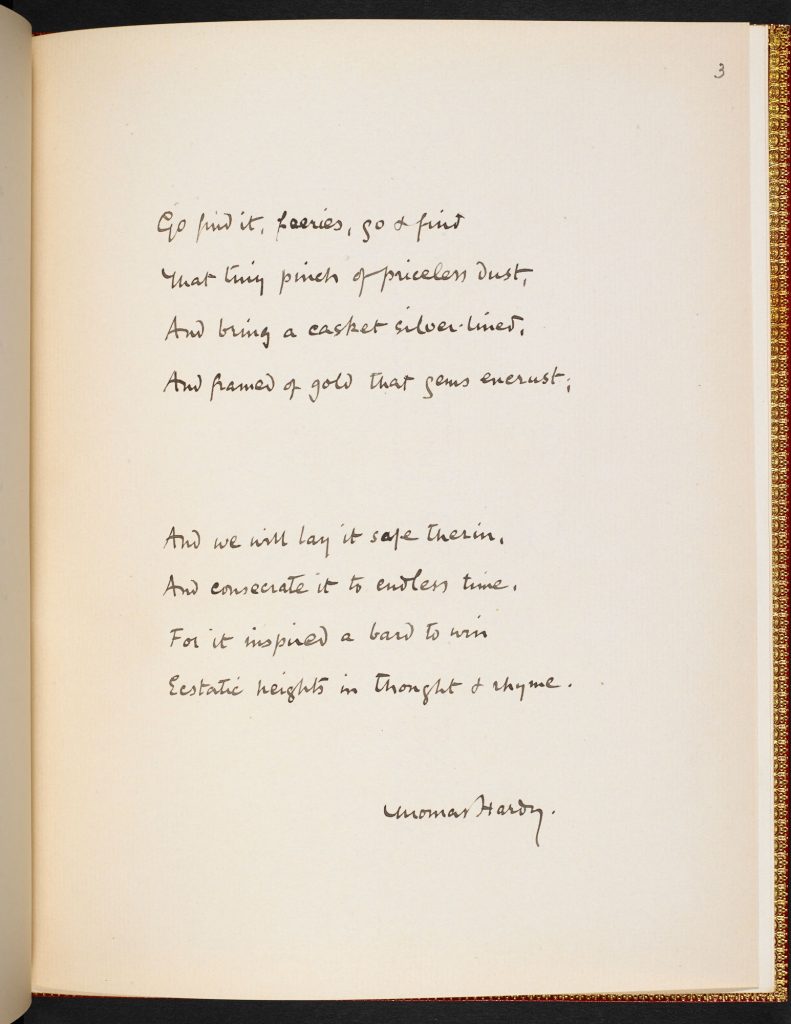 3
Go find it, faeries, go & find
That tiny pinch of priceless dust,
And bring a casket silver-lined,
And framed of gold that gems encrust;
And we will lay it safe therin,
And consecrate it to endless time,
For it inspired a bard to win
Ecstatic heights in thought & rhyme.
Thomas Hardy.